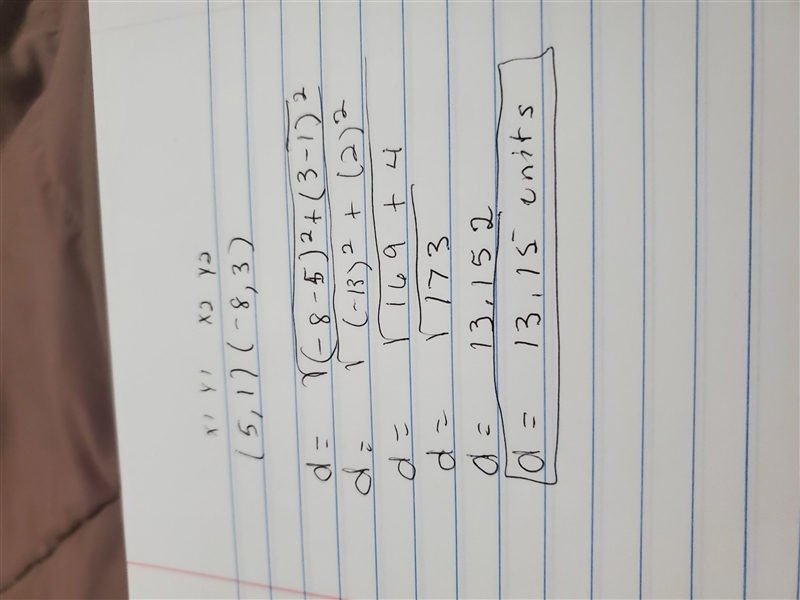 x1 y1 x2 y2
(5,1) (-8,3)
d = √(-8-5)²+(3-1)²
d = √(-13)² + (2)²
d = √169 + 4
d = √173
d = 13.152
d = 13.15 units